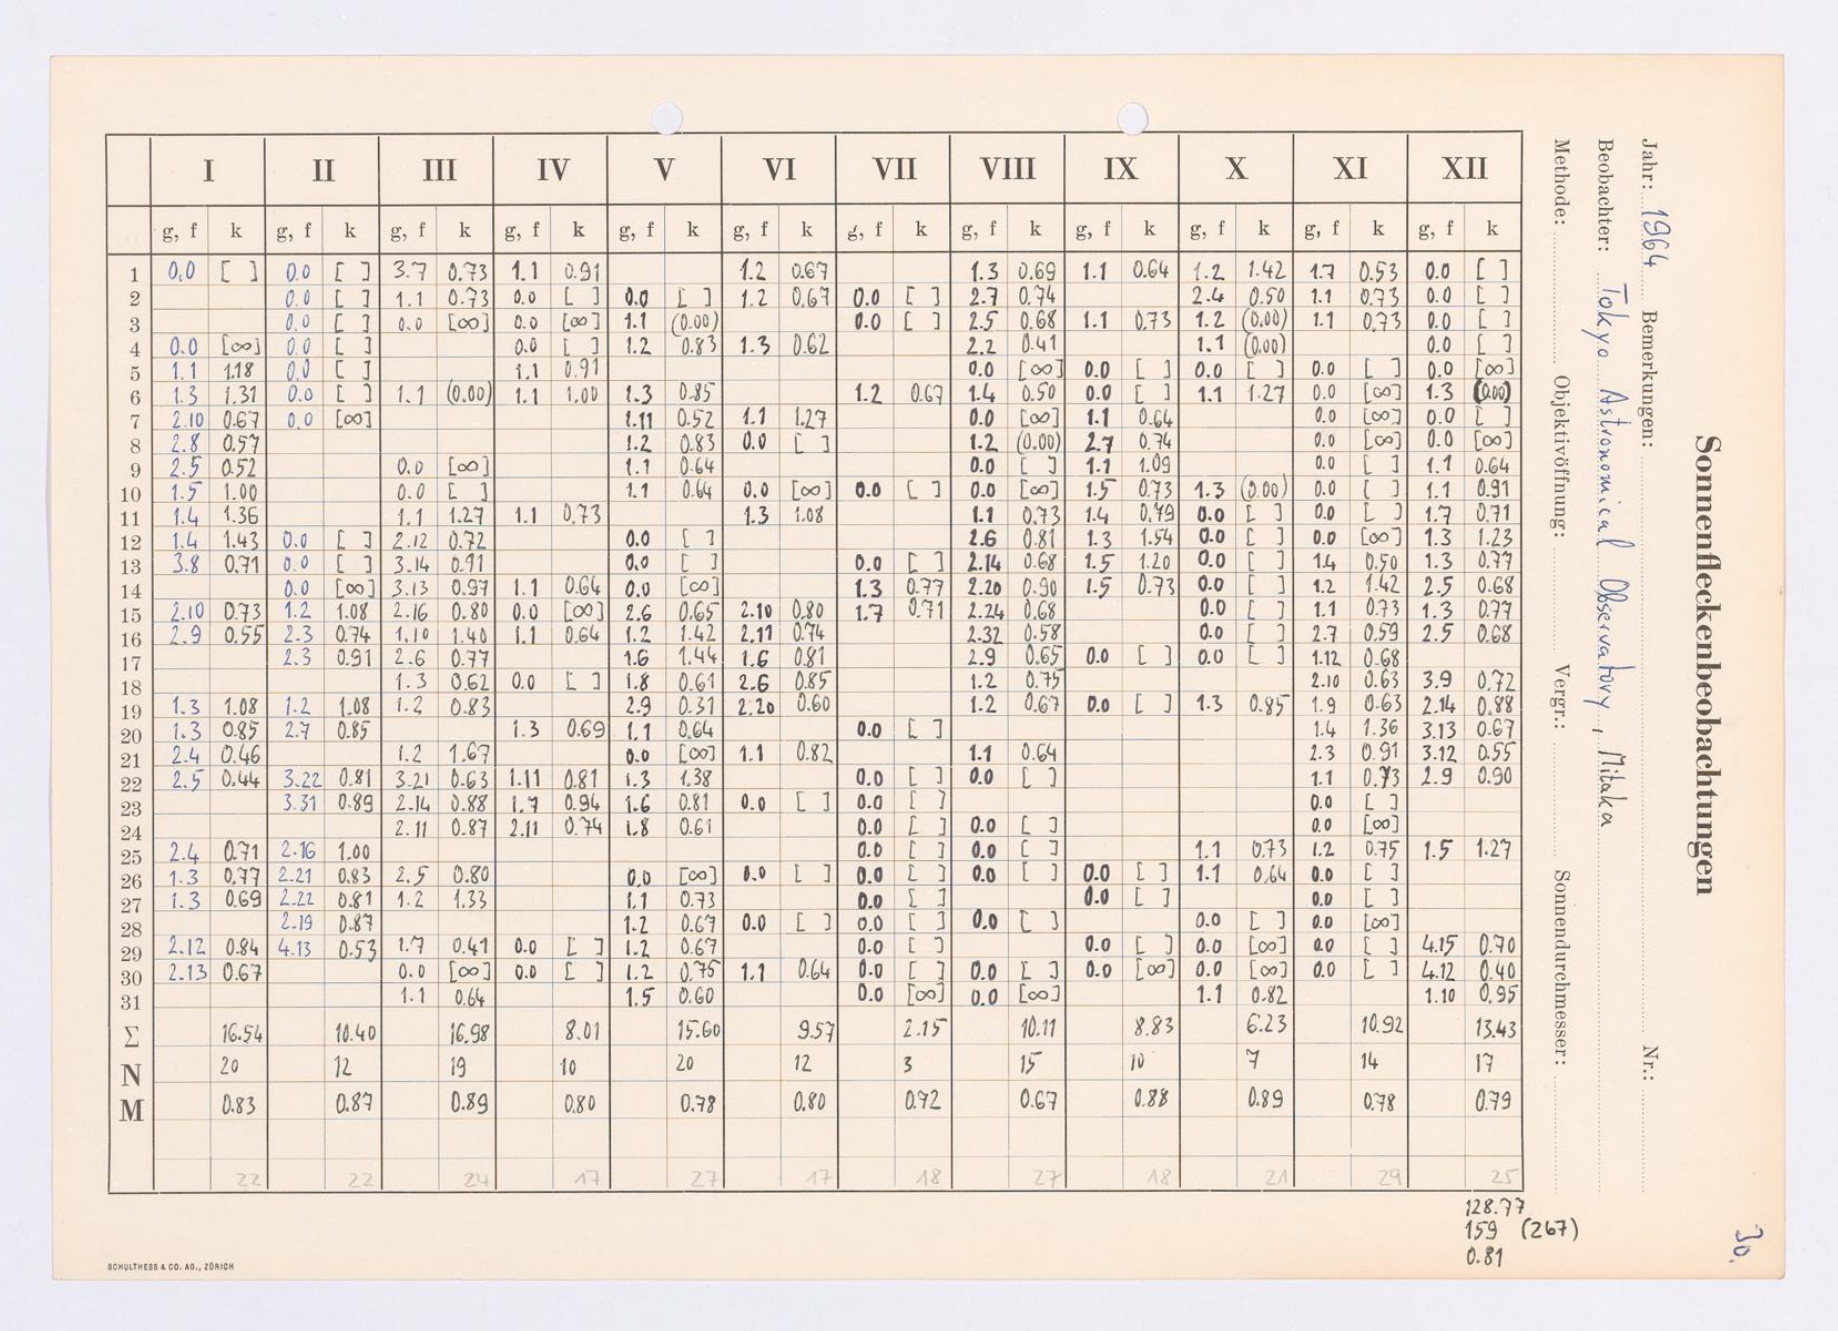 Sonnenfleckenbeobachtungen
Jahr: 1964 Bemerkungen: Nr.:
Beobachter: Tokyo Astronomical Observatory, Mitaka
Methode: Objektivöffnung: Vergr.: Sonnendurchmesser:
I II III IV V VI VII VIII IX X XI XII
g, f k g, f k g, f k g, f k g, f k g, f k g, f k g, f k g, f k g, f k g, f k g, f k
1 0.0 [ ] 0.0 [ ] 3.7 0.73 1.1 0.91 1.2 0.67 1.3 0.69 1.1 0.64 1.2 1.42 1.7 0.53 0.0 [ ]
2 0.0 [ ] 1.1 0.73 0.0 [ ] 0.0 [ ] 1.2 0.67 0.0 [ ] 2.7 0.74 2.4 0.50 1.1 0.73 0.0 [ ]
3 0.0 [ ] 0.0 [∞] 0.0 [∞] 1.1 (0.00) 0.0 [ ] 2.5 0.68 1.1 0.73 1.2 (0.00) 1.1 0.73 0.0 [ ]
4 0.0 [∞] 0.0 [ ] 0.0 [ ] 1.2 0.83 1.3 0.62 2.2 0.41 1.1 (0.00) 0.0 [ ]
5 1.1 1.18 0.0 [ ] 1.1 0.91 0.0 [∞] 0.0 [ ] 0.0 [ ] 0.0 [ ] 0.0 [∞]
6 1.3 1.31 0.0 [ ] 1.1 (0.00) 1.1 1.00 1.3 0.85 1.2 0.67 1.4 0.50 0.0 [ ] 1.1 1.27 0.0 [∞] 1.3 (0.00)
7 2.10 0.67 0.0 [∞] 1.11 0.52 1.1 1.27 0.0 [∞] 1.1 0.64 0.0 [∞] 0.0 [ ]
8 2.8 0.57 1.2 0.83 0.0 [ ] 1.2 (0.00) 2.7 0.74 0.0 [∞] 0.0 [∞]
9 2.5 0.52 0.0 [∞] 1.1 0.64 0.0 [ ] 1.1 1.09 0.0 [ ] 1.1 0.64
10 1.5 1.00 0.0 [ ] 1.1 0.64 0.0 [∞] 0.0 [ ] 0.0 [∞] 1.5 0.73 1.3 (0.00) 0.0 [ ] 1.1 0.91
11 1.4 1.36 1.1 1.27 1.1 0.73 1.3 1.08 1.1 0.73 1.4 0.79 0.0 [ ] 0.0 [ ] 1.7 0.71
12 1.4 1.43 0.0 [ ] 2.12 0.72 0.0 [ ] 2.6 0.81 1.3 1.54 0.0 [ ] 0.0 [∞] 1.3 1.23
13 3.8 0.71 0.0 [ ] 3.14 0.91 0.0 [ ] 0.0 [ ] 2.14 0.68 1.5 1.20 0.0 [ ] 1.4 0.50 1.3 0.77
14 0.0 [∞] 3.13 0.97 1.1 0.64 0.0 [∞] 1.3 0.77 2.20 0.90 1.5 0.73 0.0 [ ] 1.2 1.42 2.5 0.68
15 2.10 0.73 1.2 1.08 2.16 0.80 0.0 [∞] 2.6 0.65 2.10 0.80 1.7 0.71 2.24 0.68 0.0 [ ] 1.1 0.73 1.3 0.77
16 2.9 0.55 2.3 0.74 1.10 1.40 1.1 0.64 1.2 1.42 2.11 0.74 2.32 0.58 0.0 [ ] 2.7 0.59 2.5 0.68
17 2.3 0.91 2.6 0.77 1.6 1.44 1.6 0.81 2.9 0.65 0.0 [ ] 0.0 [ ] 1.12 0.68
18 1.3 0.62 0.0 [ ] 1.8 0.61 2.6 0.85 1.2 0.75 2.10 0.63 3.9 0.72
19 1.3 1.08 1.2 1.08 1.2 0.83 2.9 0.31 2.20 0.60 1.2 0.67 0.0 [ ] 1.3 0.85 1.9 0.63 2.14 0.88
20 1.3 0.85 2.7 0.85 1.3 0.69 1.1 0.64 0.0 [ ] 1.4 1.36 3.13 0.67
21 2.4 0.46 1.2 1.67 0.0 [∞] 1.1 0.82 1.1 0.64 2.3 0.91 3.12 0.55
22 2.5 0.44 3.22 0.81 3.21 0.63 1.11 0.81 1.3 1.38 0.0 [ ] 0.0 [ ] 1.1 0.73 2.9 0.90
23 3.31 0.89 2.14 0.88 1.7 0.94 1.6 0.81 0.0 [ ] 0.0 [ ] 0.0 [ ]
24 2.11 0.87 2.11 0.74 1.8 0.61 0.0 [ ] 0.0 [ ] 0.0 [∞]
25 2.4 0.71 2.16 1.00 0.0 [ ] 0.0 [ ] 1.1 0.73 1.2 0.75 1.5 1.27
26 1.3 0.77 2.21 0.83 2.5 0.80 0.0 [∞] 0.0 [ ] 0.0 [ ] 0.0 [ ] 0.0 [ ] 1.1 0.64 0.0 [ ]
27 1.3 0.69 2.22 0.81 1.2 1.33 1.1 0.73 0.0 [ ] 0.0 [ ] 0.0 [ ]
28 2.19 0.87 1.2 0.67 0.0 [ ] 0.0 [ ] 0.0 [ ] 0.0 [ ] 0.0 [∞]
29 2.12 0.84 4.13 0.53 1.7 0.41 0.0 [ ] 1.2 0.67 0.0 [ ] 0.0 [ ] 0.0 [∞] 0.0 [ ] 4.15 0.70
30 2.13 0.67 0.0 [∞] 0.0 [ ] 1.2 0.75 1.1 0.64 0.0 [ ] 0.0 [ ] 0.0 [∞] 0.0 [∞] 0.0 [ ] 4.12 0.40
31 1.1 0.64 1.5 0.60 0.0 [∞] 0.0 [∞] 1.1 0.82 1.10 0.95
Σ 16.54 10.40 16.98 8.01 15.60 9.57 2.15 10.11 8.83 6.23 10.92 13.43
N 20 12 19 10 20 12 3 15 10 7 14 17
M 0.83 0.87 0.89 0.80 0.78 0.80 0.72 0.67 0.88 0.89 0.78 0.79
22 22 24 17 27 17 18 27 18 21 29 25
128.77
159 (267)
0.81
30.
SCHULTHESS & CO. AG., ZÜRICH